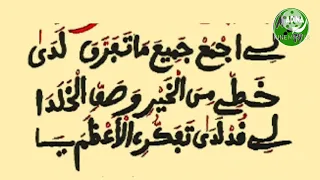 لِي اجْمَعْ جَمِيعَ مَا تَفَرَّقَ لَدَى
خَطِّي مِنَ الْخَيْرِ وَصَفِّ الْخَلَدَا
لِي قُدْ لَدَى تَفَكُّرِي الْأَعْظَمَ يَا